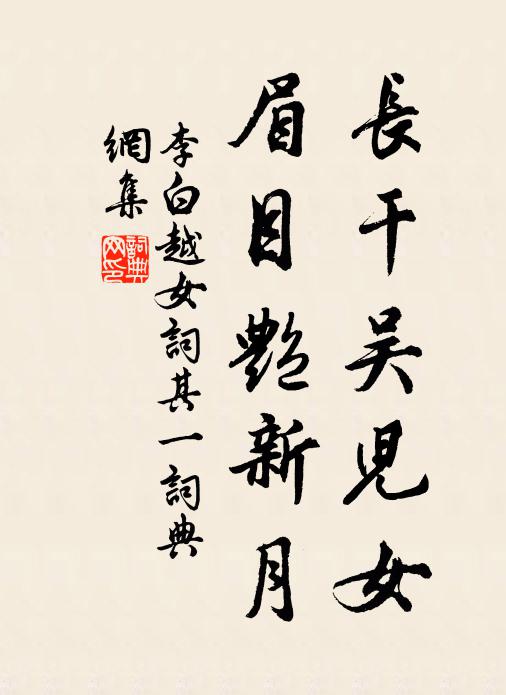 長干吳児女
眉目艷新月
李白越女詞其一詞典
網集
詞典
网印